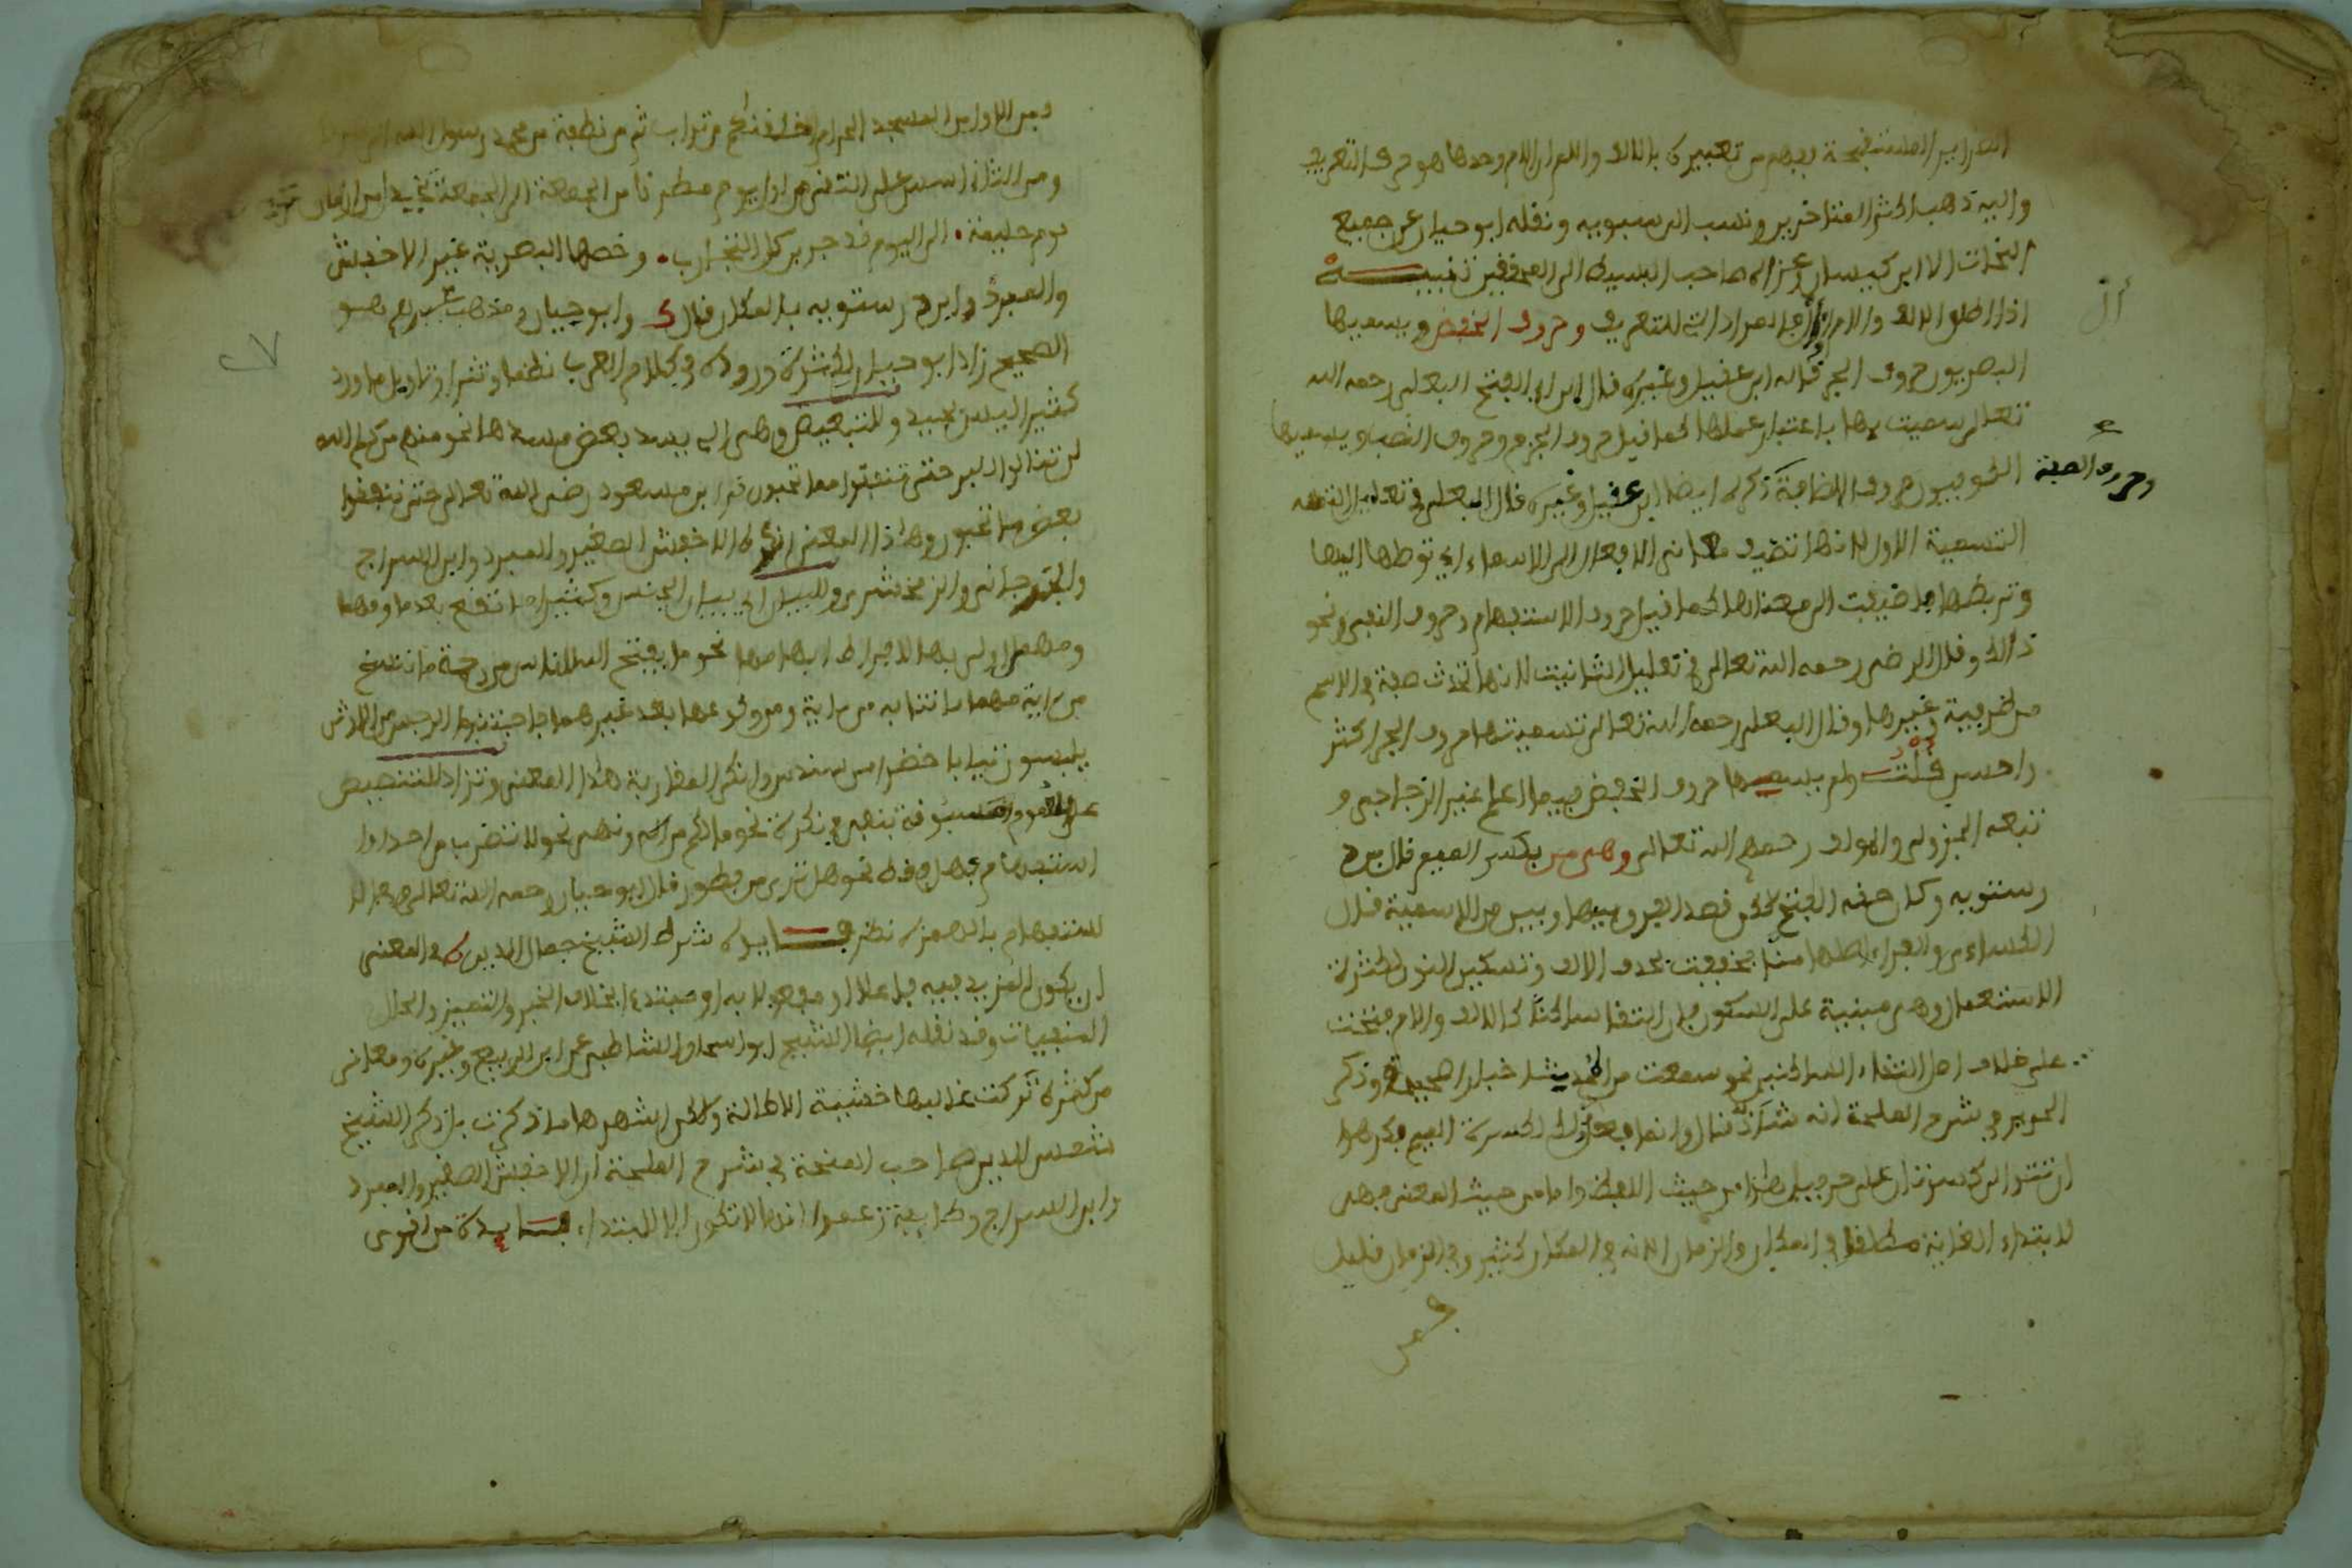 يفهم من تعبيره بالالف واللام ان اللام وحدها هو حرف التعريف
واليه ذهب اكثر المتاخرين ونسب الى سيبويه ونقله ابو حيان عن جميع
النحات الا ابن كيسان وعزاه صاحب البسيط الى المحققين تنبيه
اذا اطلق الالف واللام فالمراد التي للتعريف وحروف الخفض ويسميها
أل
البصريون حروف الجر قاله ابن عقيل وغيره قال ابن ابي الفتح البعلي رحمه الله
تعالى سميت بها باعتبار عملها كما قيل حروف الجزم وحروف النصب ويسميها
الكوفيون حروف الاضافة ذكره ايضا ابن عقيل وغيره قال البعلي في تعليل
وحروف الصفة
التسمية الاول لانها تضيف معاني الافعال الى الاسماء اي توصلها اليها
وتربطها بها فاضيفت الى معناها كما قيل حروف الاستفهام وحروف النفي ونحو
ذالك وقال الرضي رحمه الله تعالى في تعليل الثانية لانها تحدث صفة في الاسم
من ظرفية وغيرها وقال البعلي رحمه الله تعالى تسميتها حروف الجر اكثر
واحسن قلت ولم يسمها حروف الخفض فيما اعلم غير الزجاجي و
تبعه الجزولي والمولف رحمهم الله تعالى وهي من بكسر الميم قال ابن د
رستويه وكان حقه الفتح لكن قصد الفرق بينها وبين من الاسمية قال
الكساءي والفراء اصلها منا فخففت بحذف الالف وتسكين النون لكثرة
الاستعمال وهي مبنية على السكون فان التقا ساكنا كالالف واللام فتحت
على خلاف اصل التقاء الساكنين نحو سمعت من الحديث اخبارا صحيحة وذكر
في شرح الملحة انه شاذ قالوا وانما فعل ذلك لكسرة الميم فكرهوا
ان تتوالى كسرتان على حرفين هذا من حيث اللفظ واما من حيث المعنى فهي
لابتداء الغاية مطلقا في المكان والزمان الا انه في المكان كثير وفي الزمان قليل
فمن
فمن الاول من المسجد الحرام خلقناكم من تراب ثم من نطفة من محمد رسول الله
ومن الثاني اسس على التقوى من اول يوم مطرنا من الجمعة الى الجمعة تخيرن من ازمان
يوم حليمة الى اليوم قد جربن كل التجارب وخصها البصرية غير الاخفش
والمبرد وابن درستويه بالمكان قال ك وابو حيان ومذهب غيرهم هو
الصحيح زاد ابو حيان لكثرة وروده في كلام العرب نظما ونثرا وتاويل ما ورد
كثيرا ليس بجيد وللتبعيض وهي التي يسد بعض مسدها نحو منهم من كلم الله
لن تنالوا البر حتى تنفقوا مما تحبون قرا ابن مسعود رضي الله تعالى حتى تنفقوا
بعض ما تحبون وهاذا المعنى انكره الاخفش الصغير والمبرد وابن السراج
والجرجاني والزمخشري وللبيان اي بيان الجنس وكثيرا ما تقع بعد ما ومهما
وهما اولى بها لافراط ابهامهما نحو ما يفتح الله للناس من رحمة ما ننسخ
من اية مهما تاتنا به من اية ومن وقوعها بعد غيرهما فاجتنبوا الرجس من الاوثان
يلبسون ثيابا خضرا من سندس وانكر المغاربة هاذا المعنى وتزاد للتنصيص
على العموم مسبوقة بنفي في نكرة نحو مالكم من اله ونهي نحو لا تضرب من احد او
استفهام بهل فقط نحو هل ترى من فطور قال ابو حيان رحمه الله تعالى وفي الا
للستفهام بالهمزه نظر فايدة شرط الشيخ جمال الدين في المغنى
ان يكون المزيد فيه فاعلا او مفعولا به او مبتدء بخلاف الخبر والتمييز والحال
المنفيات وقد نقله ايضا الشيخ ابو اسحاق الشاطبي عن ابن ابي الربيع وغيره ومعاني
من كثيرة تركت غالبها خشية الاطالة ولكن اشهرها ما ذكرت بل ذكر الشيخ
شمس الدين صاحب المنحة في شرح الملحة ان الاخفش الصغير والمبرد
وابن السراج وطايفة زعموا انها لا تكون الا للابتداء فايدة من اقوى